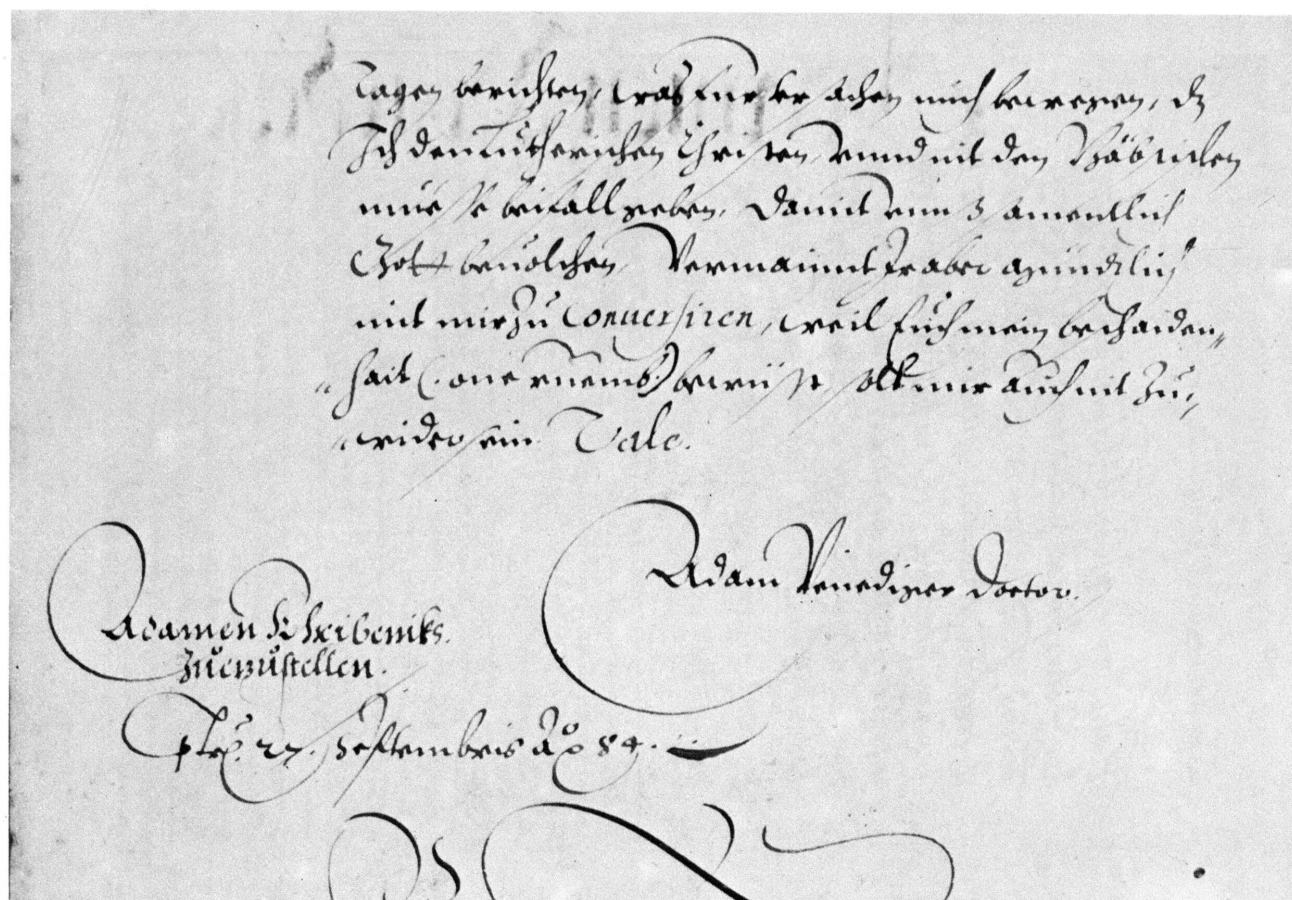 Tagen berichten, was für vrsachen mich bewegen, dz
Ich den Lutherischen Christen, vnnd nit den Bäbstischen
müesse beifall geben, Damit vnns samentlich
Gott beuolchen, Vermaint Ir aber gründtlich
mit mir zu Conuersiren, weil Euch mein beschaiden-
hait (: one ruemb:) bewüsst, solt mir auch nit zu-
wider sein. Vale.
Adam Venediger Doctor.
Adamen
zuezustellen.
27. Septembris Ao 84.